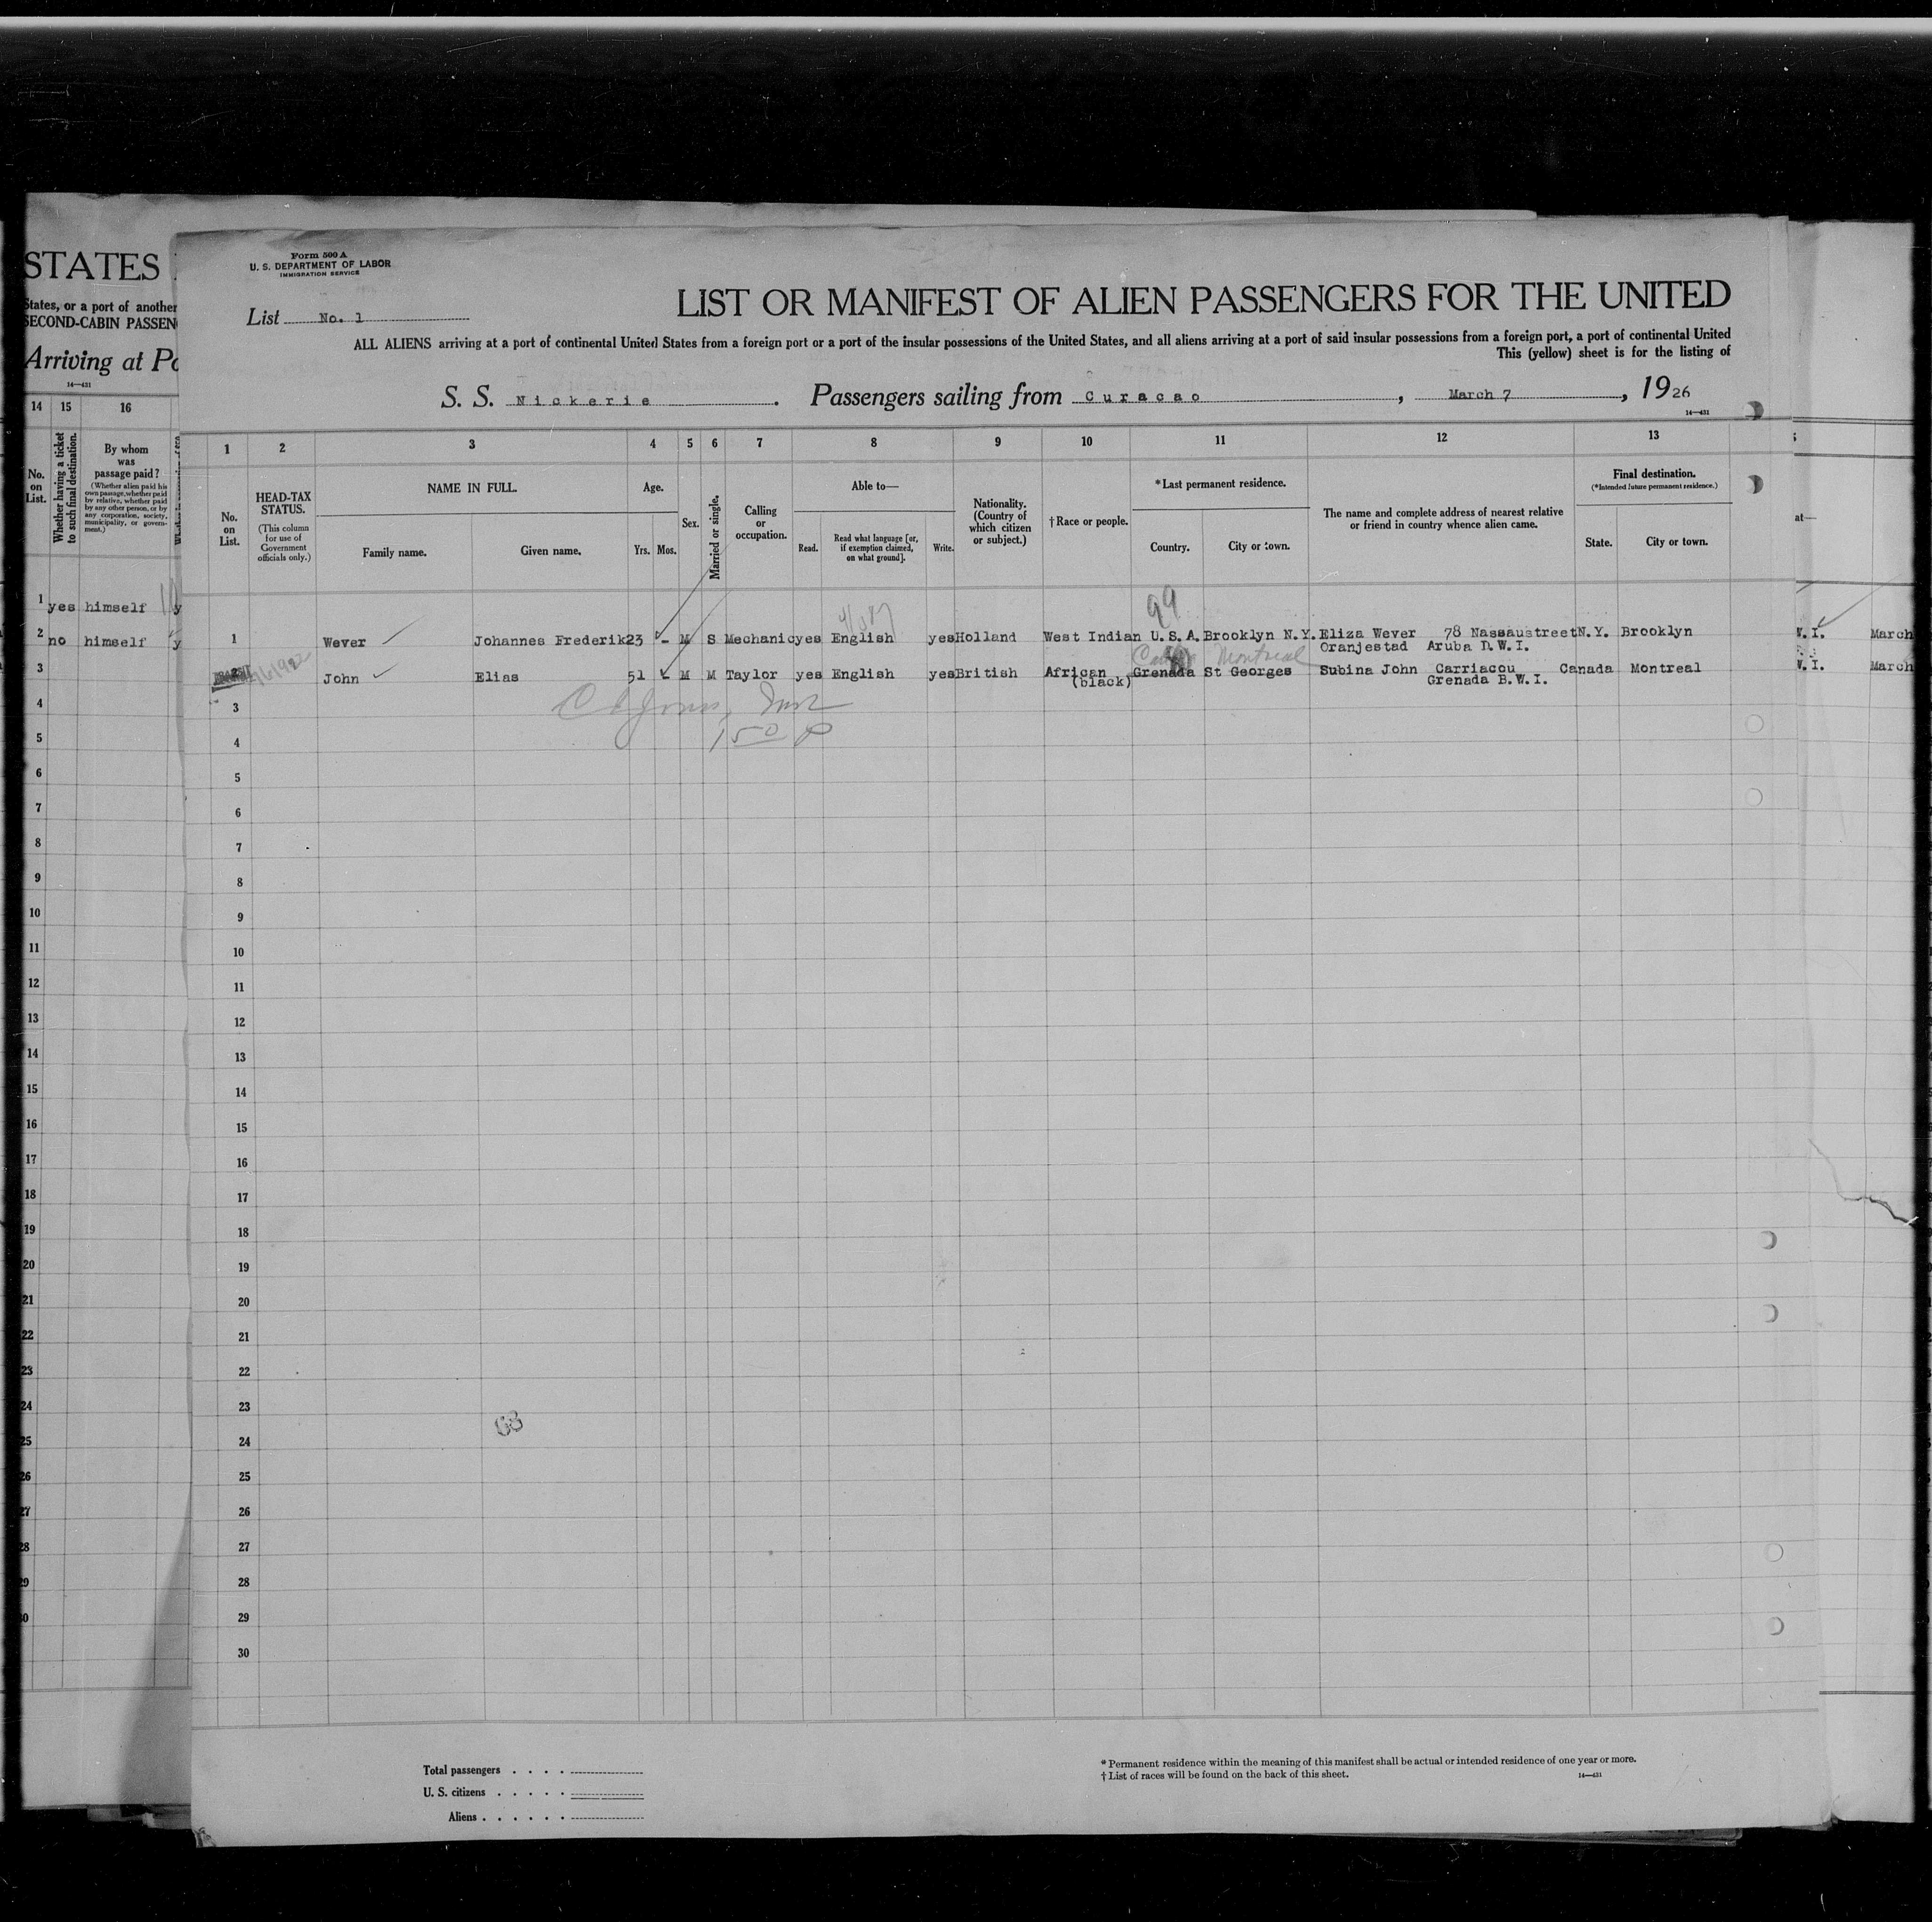 Form 500 A
U. S. DEPARTMENT OF LABOR
IMMIGRATION SERVICE
List No. 1
LIST OR MANIFEST OF ALIEN PASSENGERS FOR THE UNITED
ALL ALIENS arriving at a port of continental United States from a foreign port or a port of the insular possessions of the United States, and all aliens arriving at a port of said insular possessions from a foreign port, a port of continental United
This (yellow) sheet is for the listing of
S. S. Nickerie. Passengers sailing from Curacao, March 7, 1926
14—431
1 2 3 4 5 6 7 8 9 10 11 12 13
No. on List.
HEAD-TAX STATUS.
(This column for use of Government officials only.)
NAME IN FULL.
Family name. Given name.
Age.
Yrs. Mos.
Sex.
Married or single.
Calling or occupation.
Able to—
Read. Read what language [or, if exemption claimed, on what ground]. Write.
Nationality. (Country of which citizen or subject.)
†Race or people.
*Last permanent residence.
Country. City or town.
The name and complete address of nearest relative or friend in country whence alien came.
Final destination.
(*Intended future permanent residence.)
State. City or town.
99
1 Wever Johannes Frederik 23 - M S Mechanic yes English yes Holland West Indian U.S.A. Brooklyn N.Y. Eliza Wever 78 Nassaustreet N.Y. Brooklyn
Oranjestad Aruba D.W.I.
Montreal
John Elias 51 M M Taylor yes English yes British African Grenada St Georges Subina John Carriacou Canada Montreal
(black) Grenada B.W.I.
3
4
150
5
6
7
8
9
10
11
12
13
14
15
16
17
18
19
20
21
22
23
24
25
26
27
28
29
30
Total passengers . . . .
U. S. citizens . . . . .
Aliens . . . . . .
* Permanent residence within the meaning of this manifest shall be actual or intended residence of one year or more.
† List of races will be found on the back of this sheet.
14—431
STATES
States, or a port of another
SECOND-CABIN PASSEN
Arriving at Po
14—431
14 15 16
No. on List.
Whether having a ticket to such final destination.
By whom was passage paid?
(Whether alien paid his own passage, whether paid by relative, whether paid by any other person, or by any corporation, society, municipality, or government.)
1 yes himself y
2 no himself y
3
4
5
6
7
8
9
10
11
12
13
14
15
16
17
18
19
20
21
22
23
24
25
26
27
28
29
30
at—
W.I. March
W.I. March